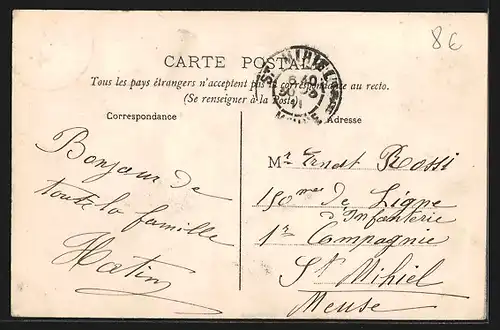 8€
CARTE POSTALE
Tous les pays étrangers n'acceptent pas la correspondance au recto.
(Se renseigner à la Poste)
Correspondance
Adresse
Bonjour de
toute la famille
Hatin
Mr Ernest Rossi
150me de Ligne
d'Infanterie
1re Compagnie
St Mihiel
Meuse
ST MIHIEL
MEUSE